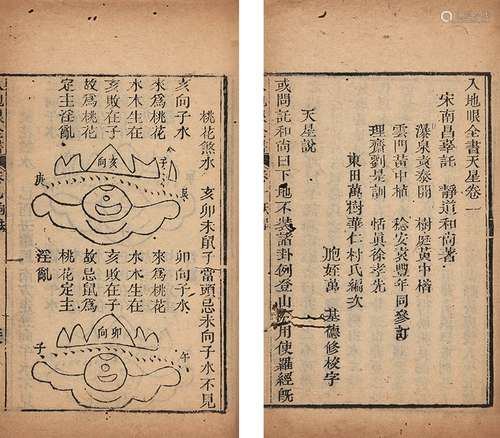 入地眼全書天星卷一
宋南昌辜託 靜道和尚著
瀑泉袁泰開 樹庭黃中楷
雲門黃中植 稔安袁豐年 同參訂
理齋劉星訓 恬眞徐孝先
東田萬樹華仁村氏編次
胞姪萬 基德修校字
天星說
或問託和尚曰下地不裝諸卦例登山用使羅經旣
入地眼全書
桃花煞水 亥卯未鼠子當頭忌未向子水不見
亥向子水
水爲桃花
水木生在
亥敗在子
故爲桃花
定主淫亂
亥向
子
庚
卯向子水
來爲桃花
水木生在
亥敗在子
故忌鼠爲
桃花定主
淫亂
卯向
午
子